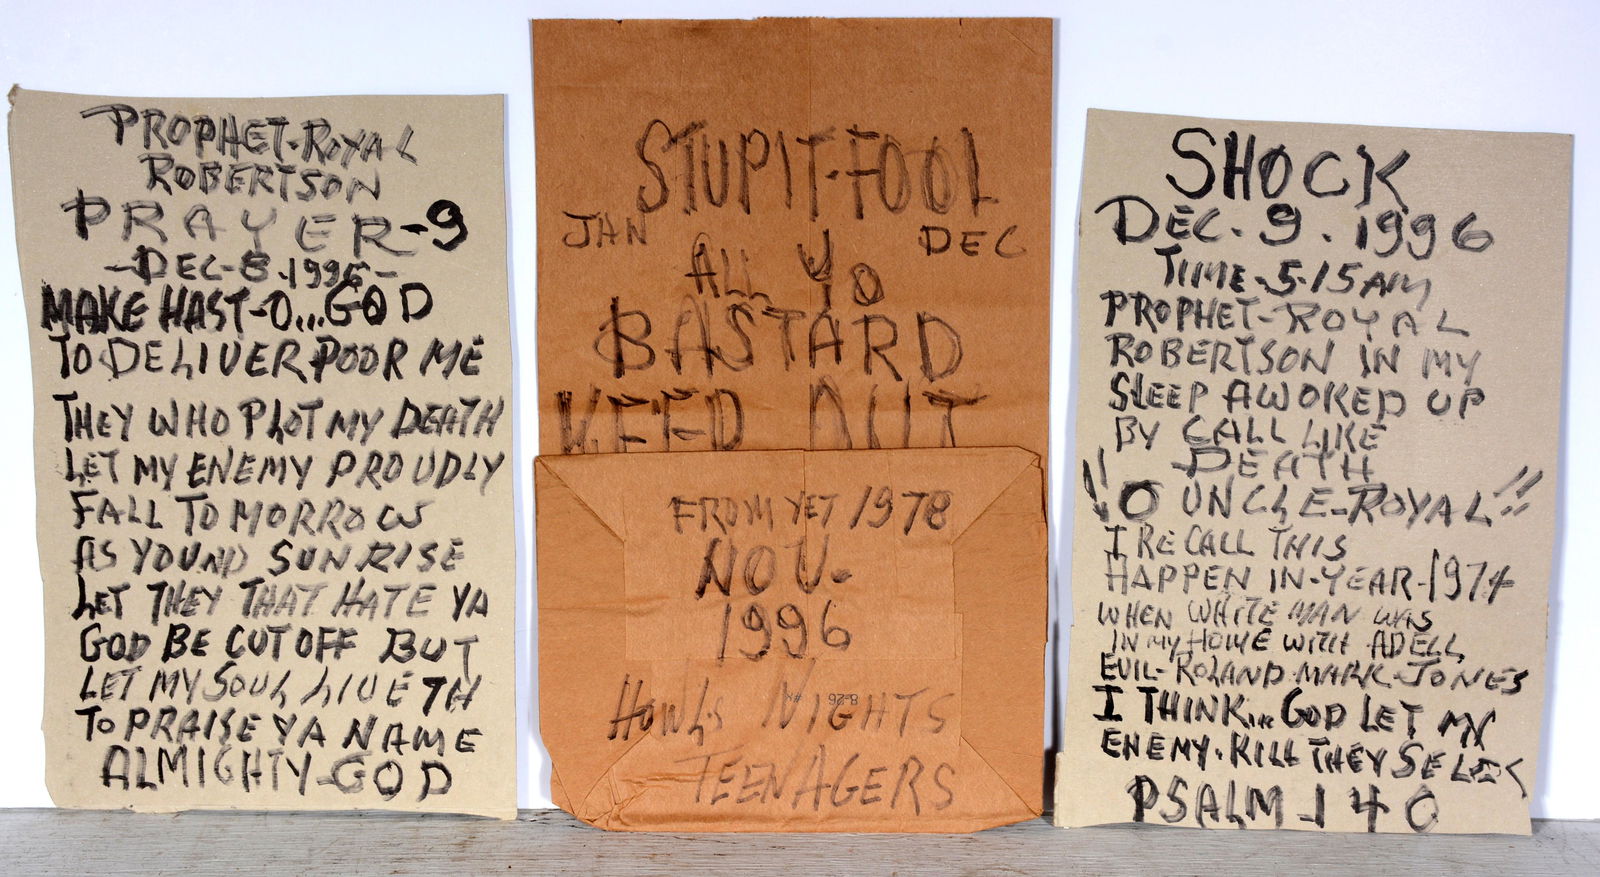 PROPHET-ROYAL
ROBERTSON
PRAYER-9
-DEC-8.1996-
MAKE HAST-O...GOD
TO DELIVER POOR ME
THEY WHO PLOT MY DEATH
LET MY ENEMY PROUDLY
FALL TOMORROWS
AS YOUND SUNRISE
LET THEY THAT HATE YA
GOD BE CUT OFF BUT
LET MY SOUL LIVETH
TO PRAISE YA NAME
ALMIGHTY-GOD
STUPIT-FOOL
JAN DEC
ALL YO
BASTARD
KEEP OUT
FROM YET 1978
NOV.
1996
HOWLS NIGHTS
8-26
TEENAGERS
SHOCK
DEC. 9. 1996
TIME-5.15AM
PROPHET-ROYAL
ROBERTSON IN MY
SLEEP AWOKED UP
BY CALL LIKE
DEATH
!!O UNCLE-ROYAL!!
I RECALL THIS
HAPPEN IN-YEAR-1974
WHEN WHITE MAN WAS
IN MY HOME WITH ADELL
EVIL-ROLAND-MARK-JONES
I THINK... GOD LET MY
ENEMY.KILL THEY SELF
PSALM-140